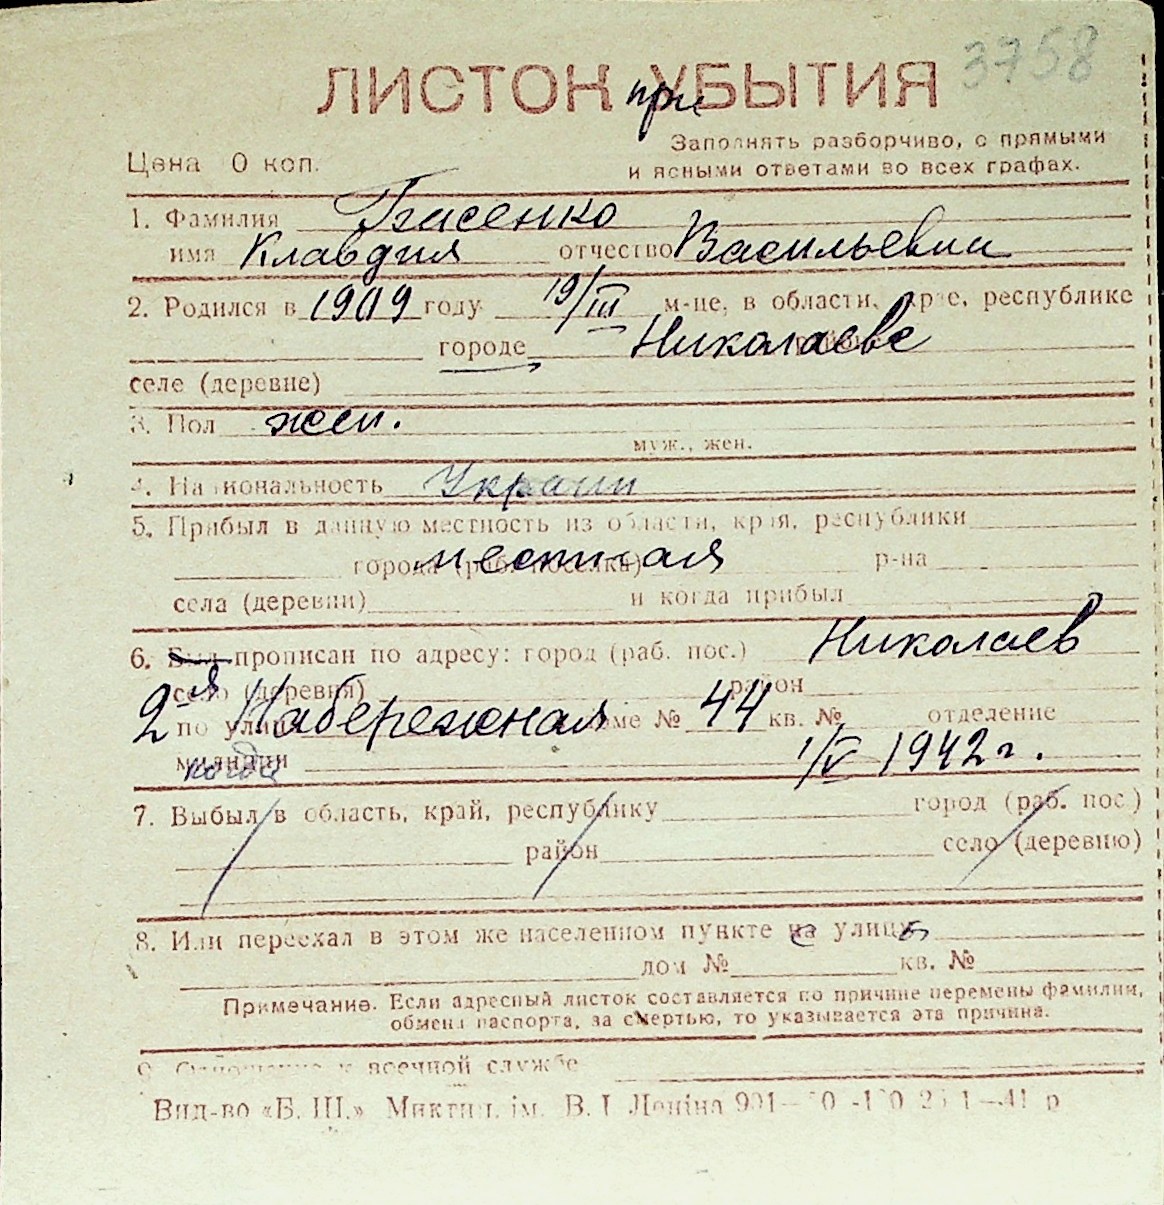 3758
ЛИСТОК при УБЫТИЯ
Заполнять разборчиво, с прямыми
Цена 0 коп. и ясными ответами во всех графах.
1. Фамилия Басенко
имя Клавдия отчество Васильевна
2. Родился в 1909 году 19/III м-це, в области, крае, республике
городе Николаеве
селе (деревне)
3. Пол жен.
муж., жен.
4. Национальность Украин
5. Прибыл в данную местность из области, края, республики
города (раб. поселка) местная р-на
села (деревни) и когда прибыл
6. Был прописан по адресу: город (раб. пос.) Николаев
село (деревня) район
по улице 2ая Набережная доме № 44 кв. № отделение
милиции когда 1/V 1942 г.
7. Выбыл в область, край, республику город (раб. пос.)
район село (деревню)
8. Или переехал в этом же населенном пункте на улицу
дом № кв. №
Примечание. Если адресный листок составляется по причине перемены фамилии,
обмена паспорта, за смертью, то указывается эта причина.
9. Отношение к военной службе
Вид-во «Б. Ш.» Микт ім. В. І. Леніна 901